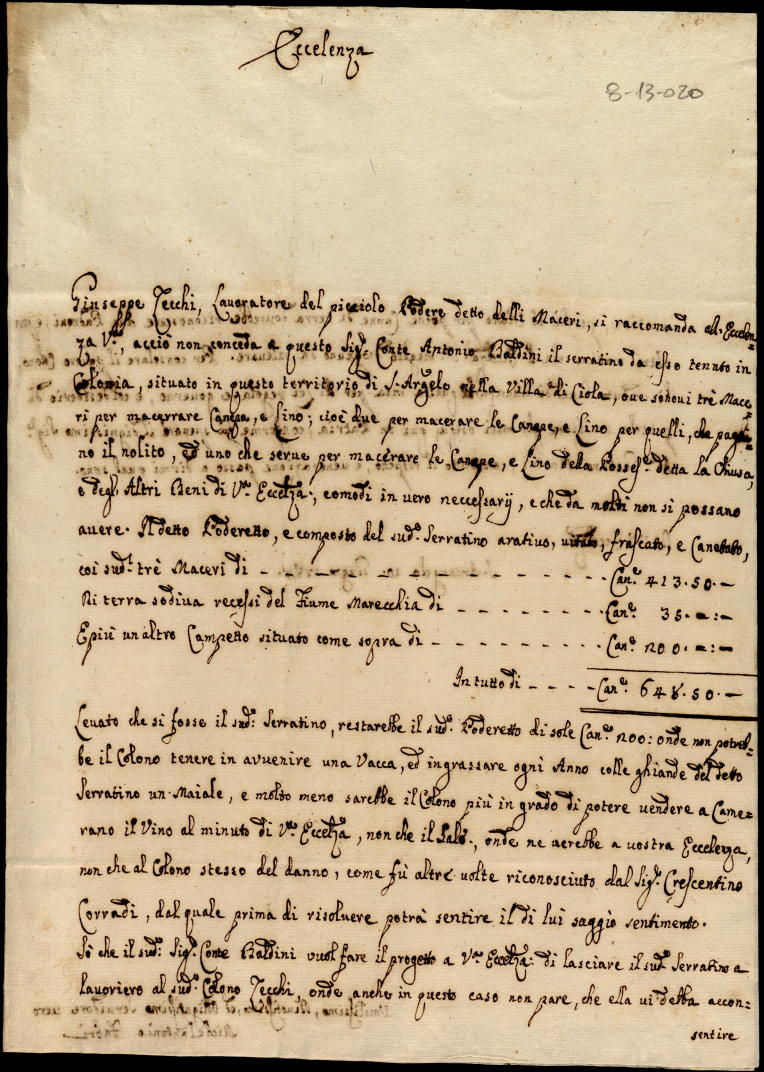 Eccelenza
8-13-020
Giuseppe Zecchi, Lavoratore del picciolo Podere detto delli Maceri, si raccomanda all'Eccelen=
za Vra, acciò non conceda a questo Sigr. Conte Antonio Baldini il serratino da esso tenuto in
Colonia, situato in questo territorio di S. Arcgelo nella Villa di Ciola, ove sonovi trè Mace=
ri per macerrare Canepa, e Lino; cioè due per macerare le Canepe, e Lino per quelli, che paga=
no il nolito, ed uno che serve per macerare le Canepe, e Lino della Possess.e detta la Chiusa,
e degl'Altri Beni di Vra Eccelza., comodi in vero neccessarij, e che da molti non si possano
avere. Il detto Poderetto, e composto del sud.o Serratino arativo, vitato, frascato, e Canetato,
coi sud.i trè Maceri di - - - - - - - - - - Can.e 413.50.-
Di terra sodiva recessi del Fiume Marecchia di - - - - - - Can.e 35.=:-
E più un altro Campetto situato come sopra di - - - - - - - Can.e 200.=:-
In tutto di - - - - Can.e 648.50.-
Levato che si fosse il sud.o Serratino, restarebbe il sud.o Poderetto di sole Can.e 200: onde non potreb=
be il Colono tenere in avvenire una Vacca, ed ingrassare ogni Anno colle ghiande del detto
Serratino un Maiale, e molto meno sarebbe il Colono più in grado di potere vendere a Came=
rano il Vino al minuto di Vra Eccelza, non che il Sale., onde ne averebbe a vostra Eccelenza,
non che al Colono stesso del danno, come fù altre volte riconosciuto dal Sigr. Crescentino
Corradi, dal quale prima di risolvere potrà sentire il di lui saggio sentimento.
Sò che il sud.o Sigr. Conte Baldini vuol fare il progetto a Vra Eccelza: di lasciare il sud.o Serratino a
lavoriero al sud.o Colono Zecchi, onde anche in questo caso non pare, che ella vi debba accon=
sentire